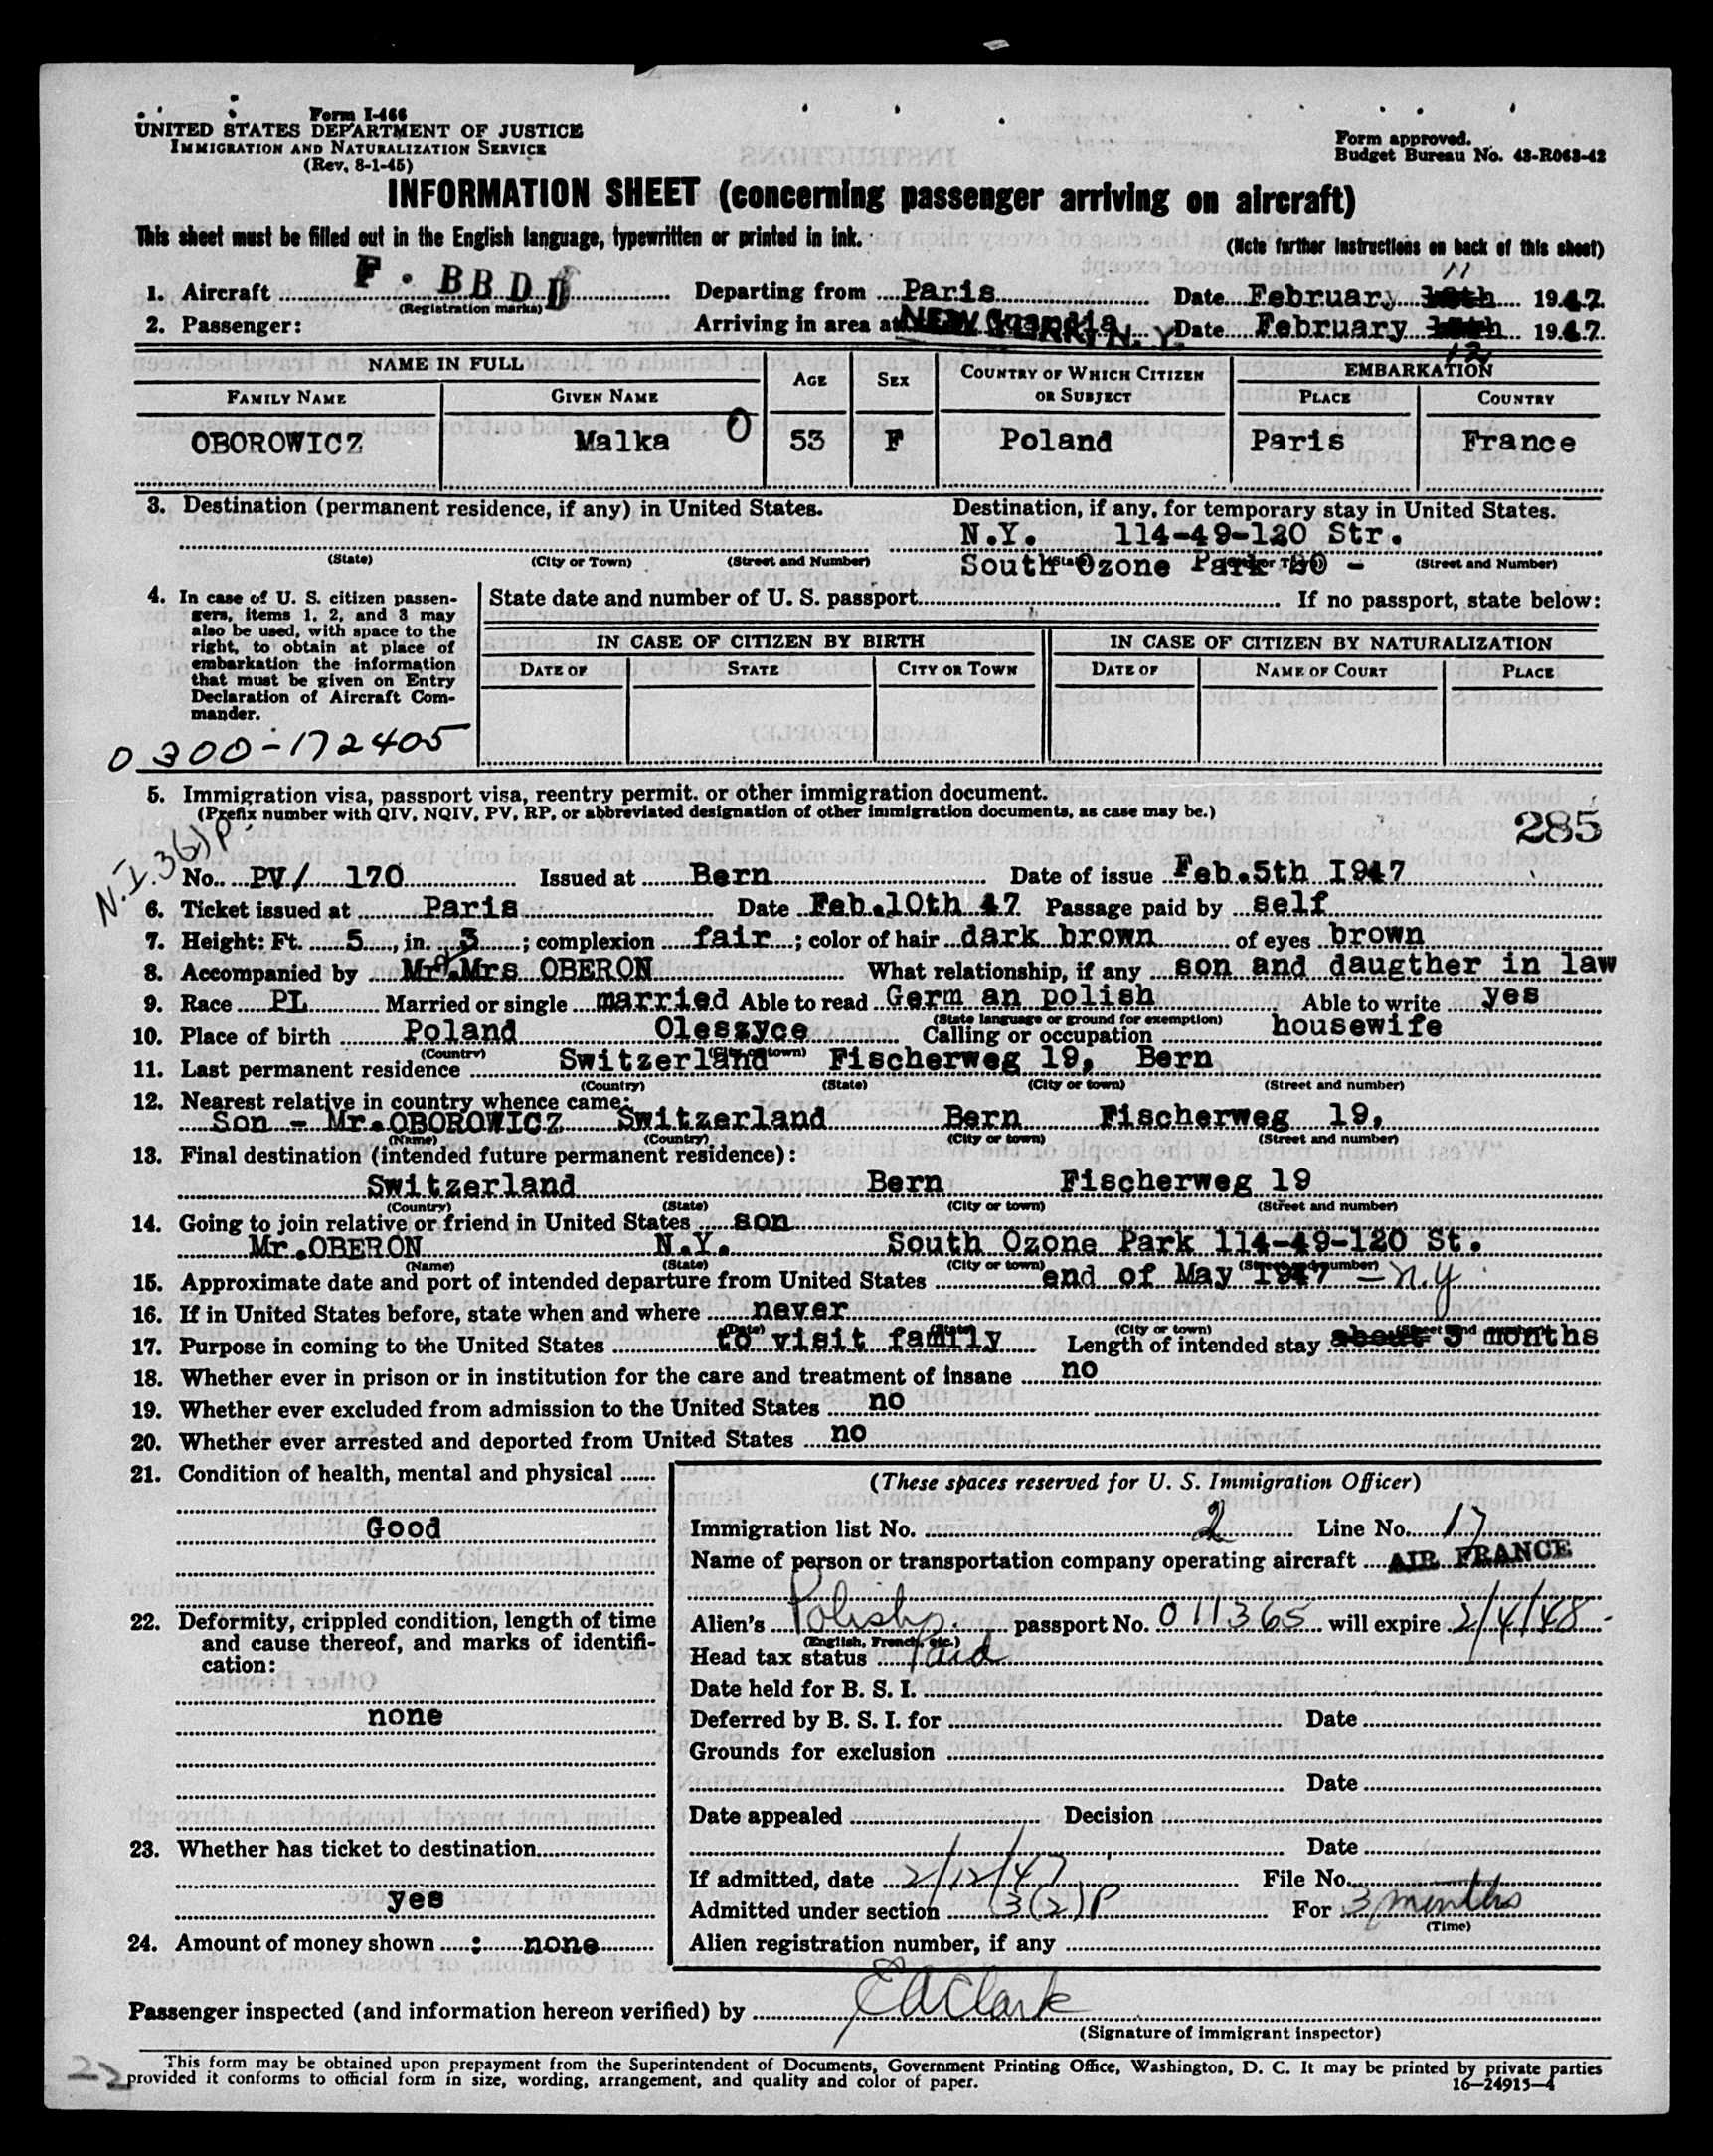 Form I-466
UNITED STATES DEPARTMENT OF JUSTICE
IMMIGRATION AND NATURALIZATION SERVICE
(Rev. 8-1-45)
Form approved.
Budget Bureau No. 43-R063-42
INFORMATION SHEET (concerning passenger arriving on aircraft)
This sheet must be filled out in the English language, typewritten or printed in ink.
(Note further instructions on back of this sheet)
11
1. Aircraft F. BBDD Departing from Paris Date February 1947.
(Registration marks)
2. Passenger: Arriving in area at NEW YORK, N. Y. Date February 1947.
12
NAME IN FULL AGE SEX COUNTRY OF WHICH CITIZEN OR SUBJECT EMBARKATION
FAMILY NAME GIVEN NAME PLACE COUNTRY
OBOROWICZ Malka O 53 F Poland Paris France
3. Destination (permanent residence, if any) in United States. Destination, if any, for temporary stay in United States.
N.Y. 114-49-120 Str.
(State) (City or Town) (Street and Number) South Ozone Park 20 - (Street and Number)
4. In case of U. S. citizen passengers, items 1, 2, and 3 may also be used, with space to the right, to obtain at place of embarkation the information that must be given on Entry Declaration of Aircraft Commander.
State date and number of U. S. passport If no passport, state below:
IN CASE OF CITIZEN BY BIRTH IN CASE OF CITIZEN BY NATURALIZATION
DATE OF STATE CITY OR TOWN DATE OF NAME OF COURT PLACE
0300-172405
5. Immigration visa, passport visa, reentry permit, or other immigration document.
(Prefix number with QIV, NQIV, PV, RP, or abbreviated designation of other immigration documents, as case may be.)
285
N.I. 3(2)P
No. PV/ 170 Issued at Bern Date of issue Feb.5th 1947
6. Ticket issued at Paris Date Feb.10th 47 Passage paid by self
7. Height: Ft. 5, in. 3; complexion fair; color of hair dark brown of eyes brown
8. Accompanied by Mr&Mrs OBERON What relationship, if any son and daugther in law
9. Race PL Married or single married Able to read Germ an polish Able to write yes
(State language or ground for exemption)
10. Place of birth Poland Oleszyce Calling or occupation housewife
(Country) (City or town)
11. Last permanent residence Switzerland Fischerweg 19, Bern
(Country) (State) (City or town) (Street and number)
12. Nearest relative in country whence came:
Son - Mr.OBOROWICZ Switzerland Bern Fischerweg 19,
(Name) (Country) (City or town) (Street and number)
13. Final destination (intended future permanent residence):
Switzerland Bern Fischerweg 19
(Country) (State) (City or town) (Street and number)
14. Going to join relative or friend in United States son
Mr.OBERON N.Y. South Ozone Park 114-49-120 St.
(Name) (State) (City or town) (Street and number)
15. Approximate date and port of intended departure from United States end of May 1947 - N.Y
16. If in United States before, state when and where never
(Date) (State) (City or town) (Street and number)
17. Purpose in coming to the United States to visit family Length of intended stay about 3 months
18. Whether ever in prison or in institution for the care and treatment of insane no
19. Whether ever excluded from admission to the United States no
20. Whether ever arrested and deported from United States no
21. Condition of health, mental and physical
Good
22. Deformity, crippled condition, length of time and cause thereof, and marks of identification:
none
23. Whether has ticket to destination
yes
24. Amount of money shown : none
(These spaces reserved for U. S. Immigration Officer)
Immigration list No. 2 Line No. 17
Name of person or transportation company operating aircraft AIR FRANCE
Alien's Polish passport No. 011365 will expire 2/4/48.
(English, French, etc.)
Head tax status Paid
Date held for B. S. I.
Deferred by B. S. I. for Date
Grounds for exclusion
Date
Date appealed Decision
Date
If admitted, date 2/12/47 File No.
Admitted under section 3(2)P For 3 months
(Time)
Alien registration number, if any
Passenger inspected (and information hereon verified) by EAClark
(Signature of immigrant inspector)
This form may be obtained upon prepayment from the Superintendent of Documents, Government Printing Office, Washington, D. C. It may be printed by private parties
provided it conforms to official form in size, wording, arrangement, and quality and color of paper. 16—24915-4
22